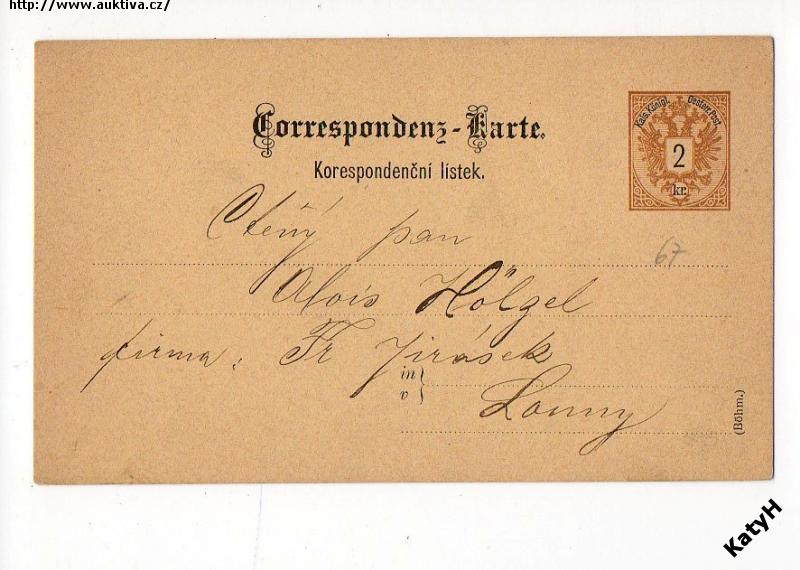 http://www.auktiva.cz/
Correspondenz-Karte.
Korespondenční lístek.
Kais. Königl. Oesterr. Post
2
kr.
Ctěný pan
67
Alois Hölzel
firma: Fr Jirásek
in
v
Louny
(Böhm.)
KatyH